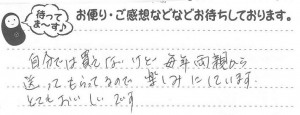 待ってま〜す♪
お便り・ご感想などなどお待ちしております。
自分では買えないけど 毎年両親から
送ってもらってるので 楽しみにしています。
とてもおいしいです